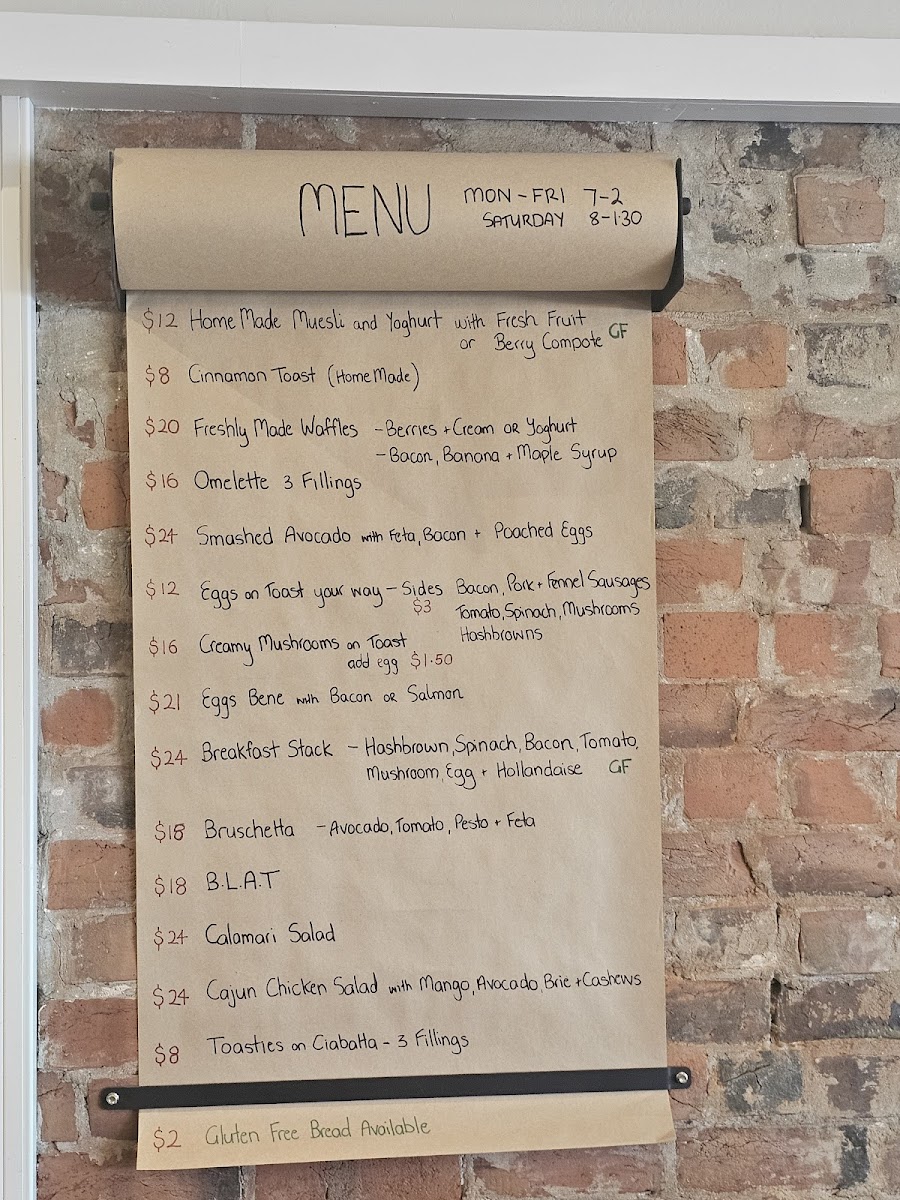 MENU MON-FRI 7-2
SATURDAY 8-1:30
$12 Home Made Muesli and Yoghurt with Fresh Fruit
or Berry Compote GF
$8 Cinnamon Toast (Home Made)
$20 Freshly Made Waffles - Berries + Cream OR Yoghurt
- Bacon, Banana + Maple Syrup
$16 Omelette 3 Fillings
$24 Smashed Avocado with Feta, Bacon + Poached Eggs
$12 Eggs on Toast your way - Sides Bacon, Pork + Fennel Sausages
$3 Tomato, Spinach, Mushrooms
Hashbrowns
$16 Creamy Mushrooms on Toast
add egg $1.50
$21 Eggs Bene with Bacon OR Salmon
$24 Breakfast Stack - Hashbrown, Spinach, Bacon, Tomato,
Mushroom, Egg + Hollandaise GF
$18 Bruschetta - Avocado, Tomato, Pesto + Feta
$18 B.L.A.T
$24 Calamari Salad
$24 Cajun Chicken Salad with Mango, Avocado, Brie + Cashews
$8 Toasties on Ciabatta - 3 Fillings
$2 Gluten Free Bread Available